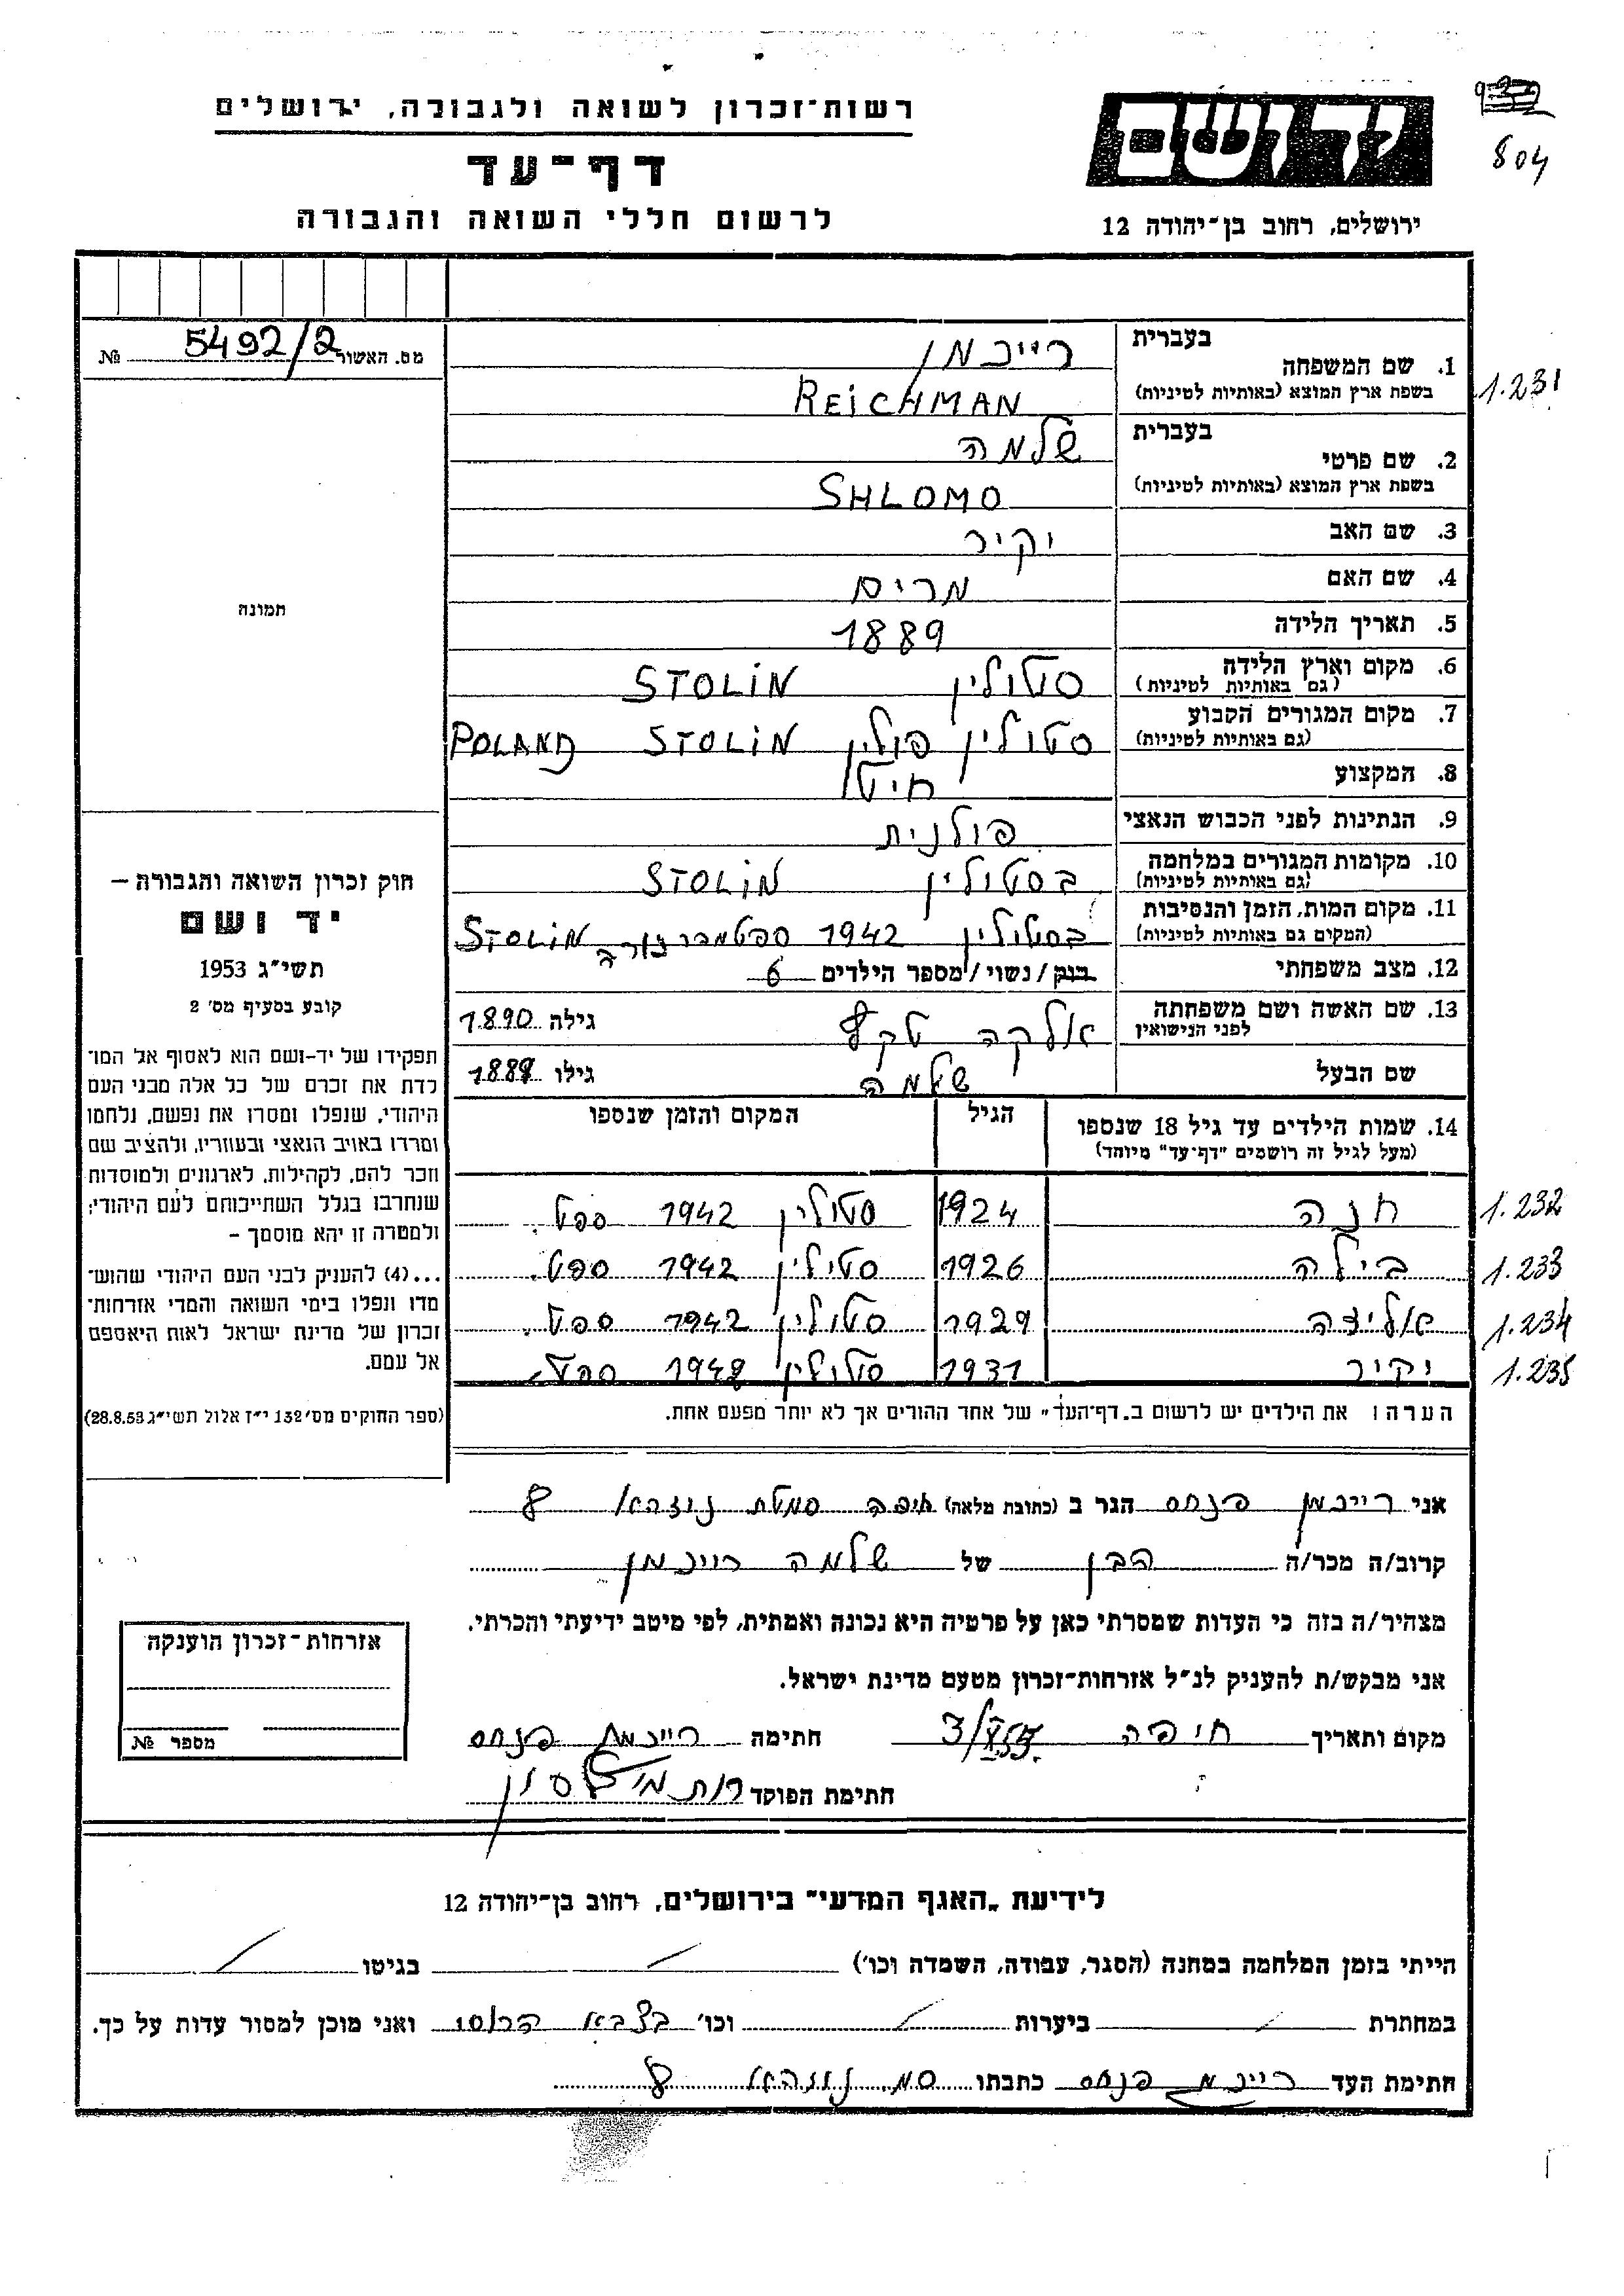 רשות־זכרון לשואה ולגבורה, ירושלים
דף־עד
לרשום חללי השואה והגבורה
ידושם
ירושלים, רחוב בן־יהודה 12
804
5492/2 מס. האשור №
בעברית רייכמן
1. שם המשפחה
בשפת ארץ המוצא (באותיות לטיניות) REICHMAN
1.231
בעברית שלמה
2. שם פרטי
בשפת ארץ המוצא (באותיות לטיניות) SHLOMO
3. שם האב יקיר
4. שם האם מרים
5. תאריך הלידה 1889
6. מקום וארץ הלידה סטולין STOLIN
(גם באותיות לטיניות)
7. מקום המגורים הקבוע סטולין פולין STOLIN POLAND
(גם באותיות לטיניות)
8. המקצוע חיטן
9. הנתינות לפני הכבוש הנאצי פולנית
10. מקומות המגורים במלחמה בסטולין STOLIN
(גם באותיות לטיניות)
11. מקום המות, הזמן והנסיבות בסטולין 1942 ספטמבר STOLIN
(המקום גם באותיות לטיניות)
12. מצב משפחתי רווק/נשוי/מספר הילדים 6
13. שם האשה ושם משפחתה אלקה גילה 1890
לפני הנישואין
שם הבעל שלמה גילו 1889
14. שמות הילדים עד גיל 18 שנספו הגיל המקום והזמן שנספו
(מעל לגיל זה רושמים "דף־עד" מיוחד)
חנה 1924 סטולין 1942 ספט. 1.232
בילה 1926 סטולין 1942 ספט. 1.233
אליזה 1929 סטולין 1942 ספט. 1.234
יקיר 1931 סטולין 1942 ספט. 1.235
הערה: את הילדים יש לרשום ב„דף־העד" של אחד ההורים אך לא יותר מפעם אחת.
תמונה
חוק זכרון השואה והגבורה –
יד ושם
תשי"ג 1953
קובע בסעיף מס' 2
תפקידו של יד-ושם הוא לאסוף אל המו־
לדת את זכרם של כל אלה מבני העם
היהודי, שנפלו ומסרו את נפשם, נלחמו
ומרדו באויב הנאצי ובעוזריו, ולהציב שם
וזכר להם, לקהילות, לארגונים ולמוסדות
שנחרבו בגלל השתייכותם לעם היהודי;
ולמטרה זו יהא מוסמך –
...(4) להעניק לבני העם היהודי שהוש־
מדו ונפלו בימי השואה והמרי אזרחות־
זכרון של מדינת ישראל לאות היאספם
אל עמם.
(ספר החוקים מס' 132 י"ז אלול תשי"ג 28.8.53)
אני רייכמן פנחס הגר ב (כתובת מלאה) חיפה סמטת 8
קרוב/ה מכר/ה הבן של שלמה רייכמן
מצהיר/ה בזה כי העדות שמסרתי כאן על פרטיה היא נכונה ואמתית, לפי מיטב ידיעתי והכרתי.
אני מבקש/ת להעניק לנ"ל אזרחות־זכרון מטעם מדינת ישראל.
מקום ותאריך חיפה חתימה רייכמן פנחס
חתימת הפוקד רות
אזרחות־זכרון הוענקה
מספר №
לידיעת „האגף המדעי" בירושלים, רחוב בן־יהודה 12
הייתי בזמן המלחמה במחנה (הסגר, עבודה, השמדה וכו') בגיטו
במחתרת ביערות וכו' בצבא ואני מוכן למסור עדות על כך.
חתימת העד פנחס כתבתו סמ. 8